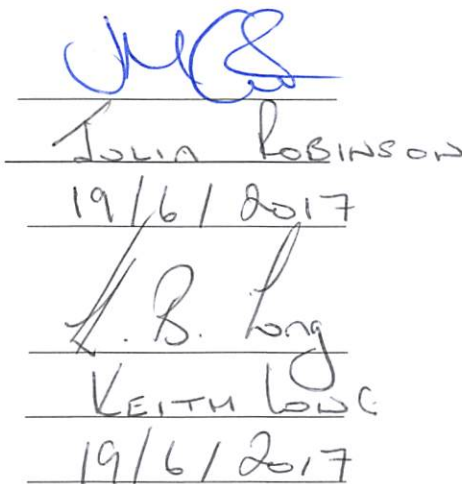 Julia Robinson
19/6/2017
K. B. Long
Keith Long
19/6/2017